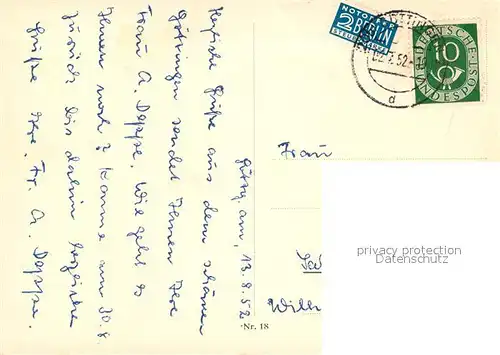 Herzliche Grüße aus dem schönen
Göttingen sendet Ihnen Ihre
Frau A. Deppe. Wie geht es
Ihnen noch? Komme am 30.8.
zurück bis dahin herzliche
Grüße Ihre Fr. A. Deppe.
Göttg. am, 13.8.52
NOTOPFER
2 BERLIN
STEUERMARKE
52
d
10
DEUTSCHE
BUNDESPOST
Frau
Nr. 18
privacy protection